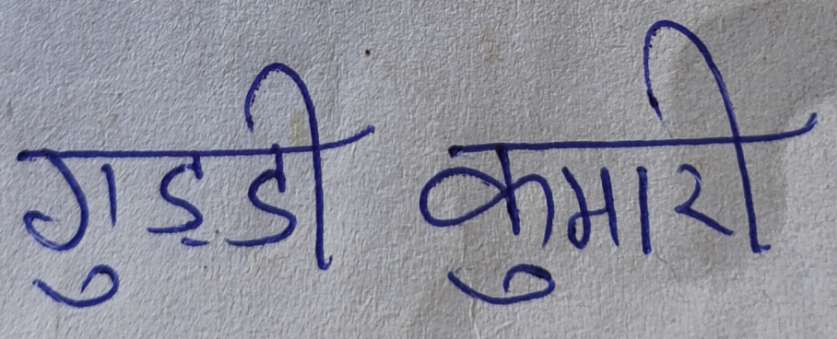 गुड्डी कुमारी